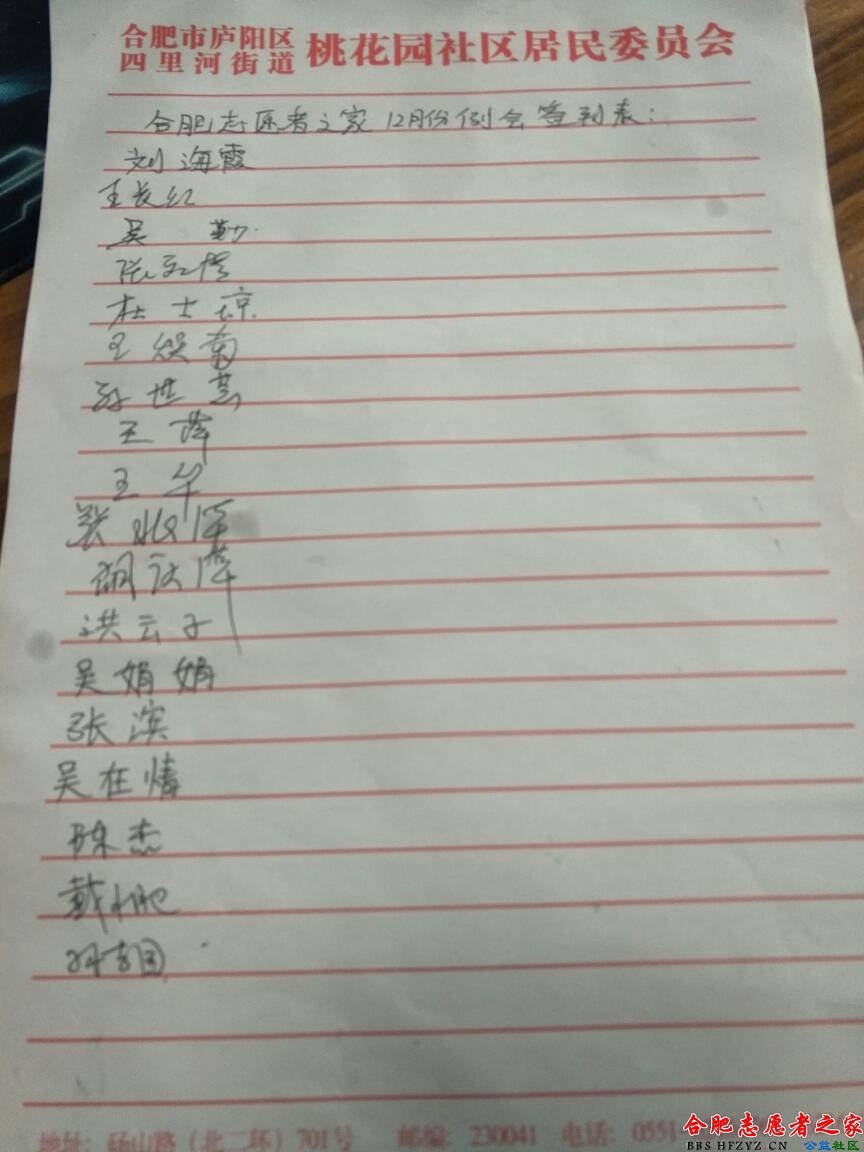 合肥市庐阳区
四里河街道
桃花园社区居民委员会
合肥志愿者之家12月份例会签到表：
刘海霞
王长红
吴勤
杜士琼
王焕菊
孙世芸
王萍
王华
张
胡
洪云子
吴娟娟
张滨
吴在情
陈杰
戴
地址：砀山路（北二环）701号 邮编：230041 电话：0551
合肥志愿者之家
BBS.HFZYZ.CN 公益社区